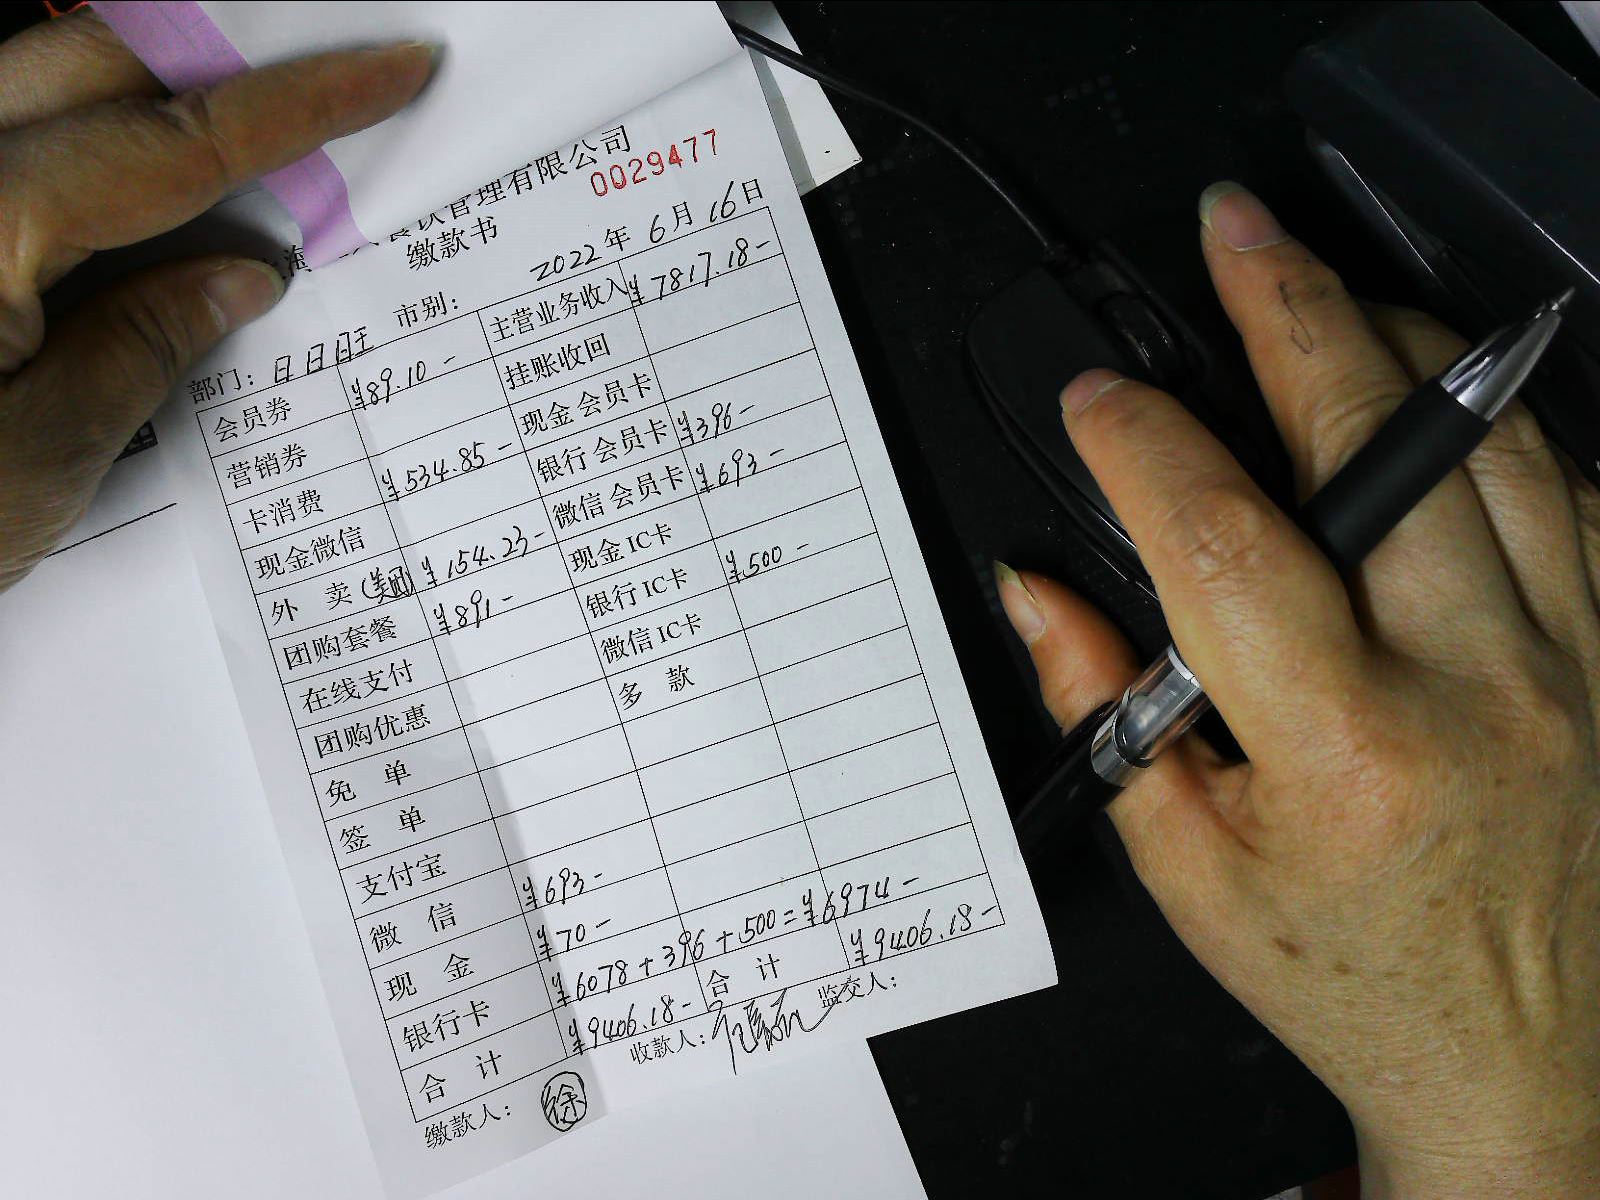 餐饮管理有限公司
0029477
缴款书
2022年6月16日
部门：日日旺 市别：
会员券 ¥89.10- 主营业务收入 ¥7817.18-
营销券 挂账收回
卡消费 ¥534.85- 现金会员卡
现金微信 银行会员卡 ¥396-
外 卖(美团) ¥154.23- 微信会员卡 ¥693-
团购套餐 ¥891- 现金IC卡
在线支付 银行IC卡 ¥500-
团购优惠 微信IC卡
免 单 多 款
签 单
支付宝
微 信 ¥693-
现 金 ¥70-
银行卡 ¥6078+396+500=¥6974-
合 计 ¥9406.18- 合 计 ¥9406.18-
缴款人：徐 收款人： 监交人：